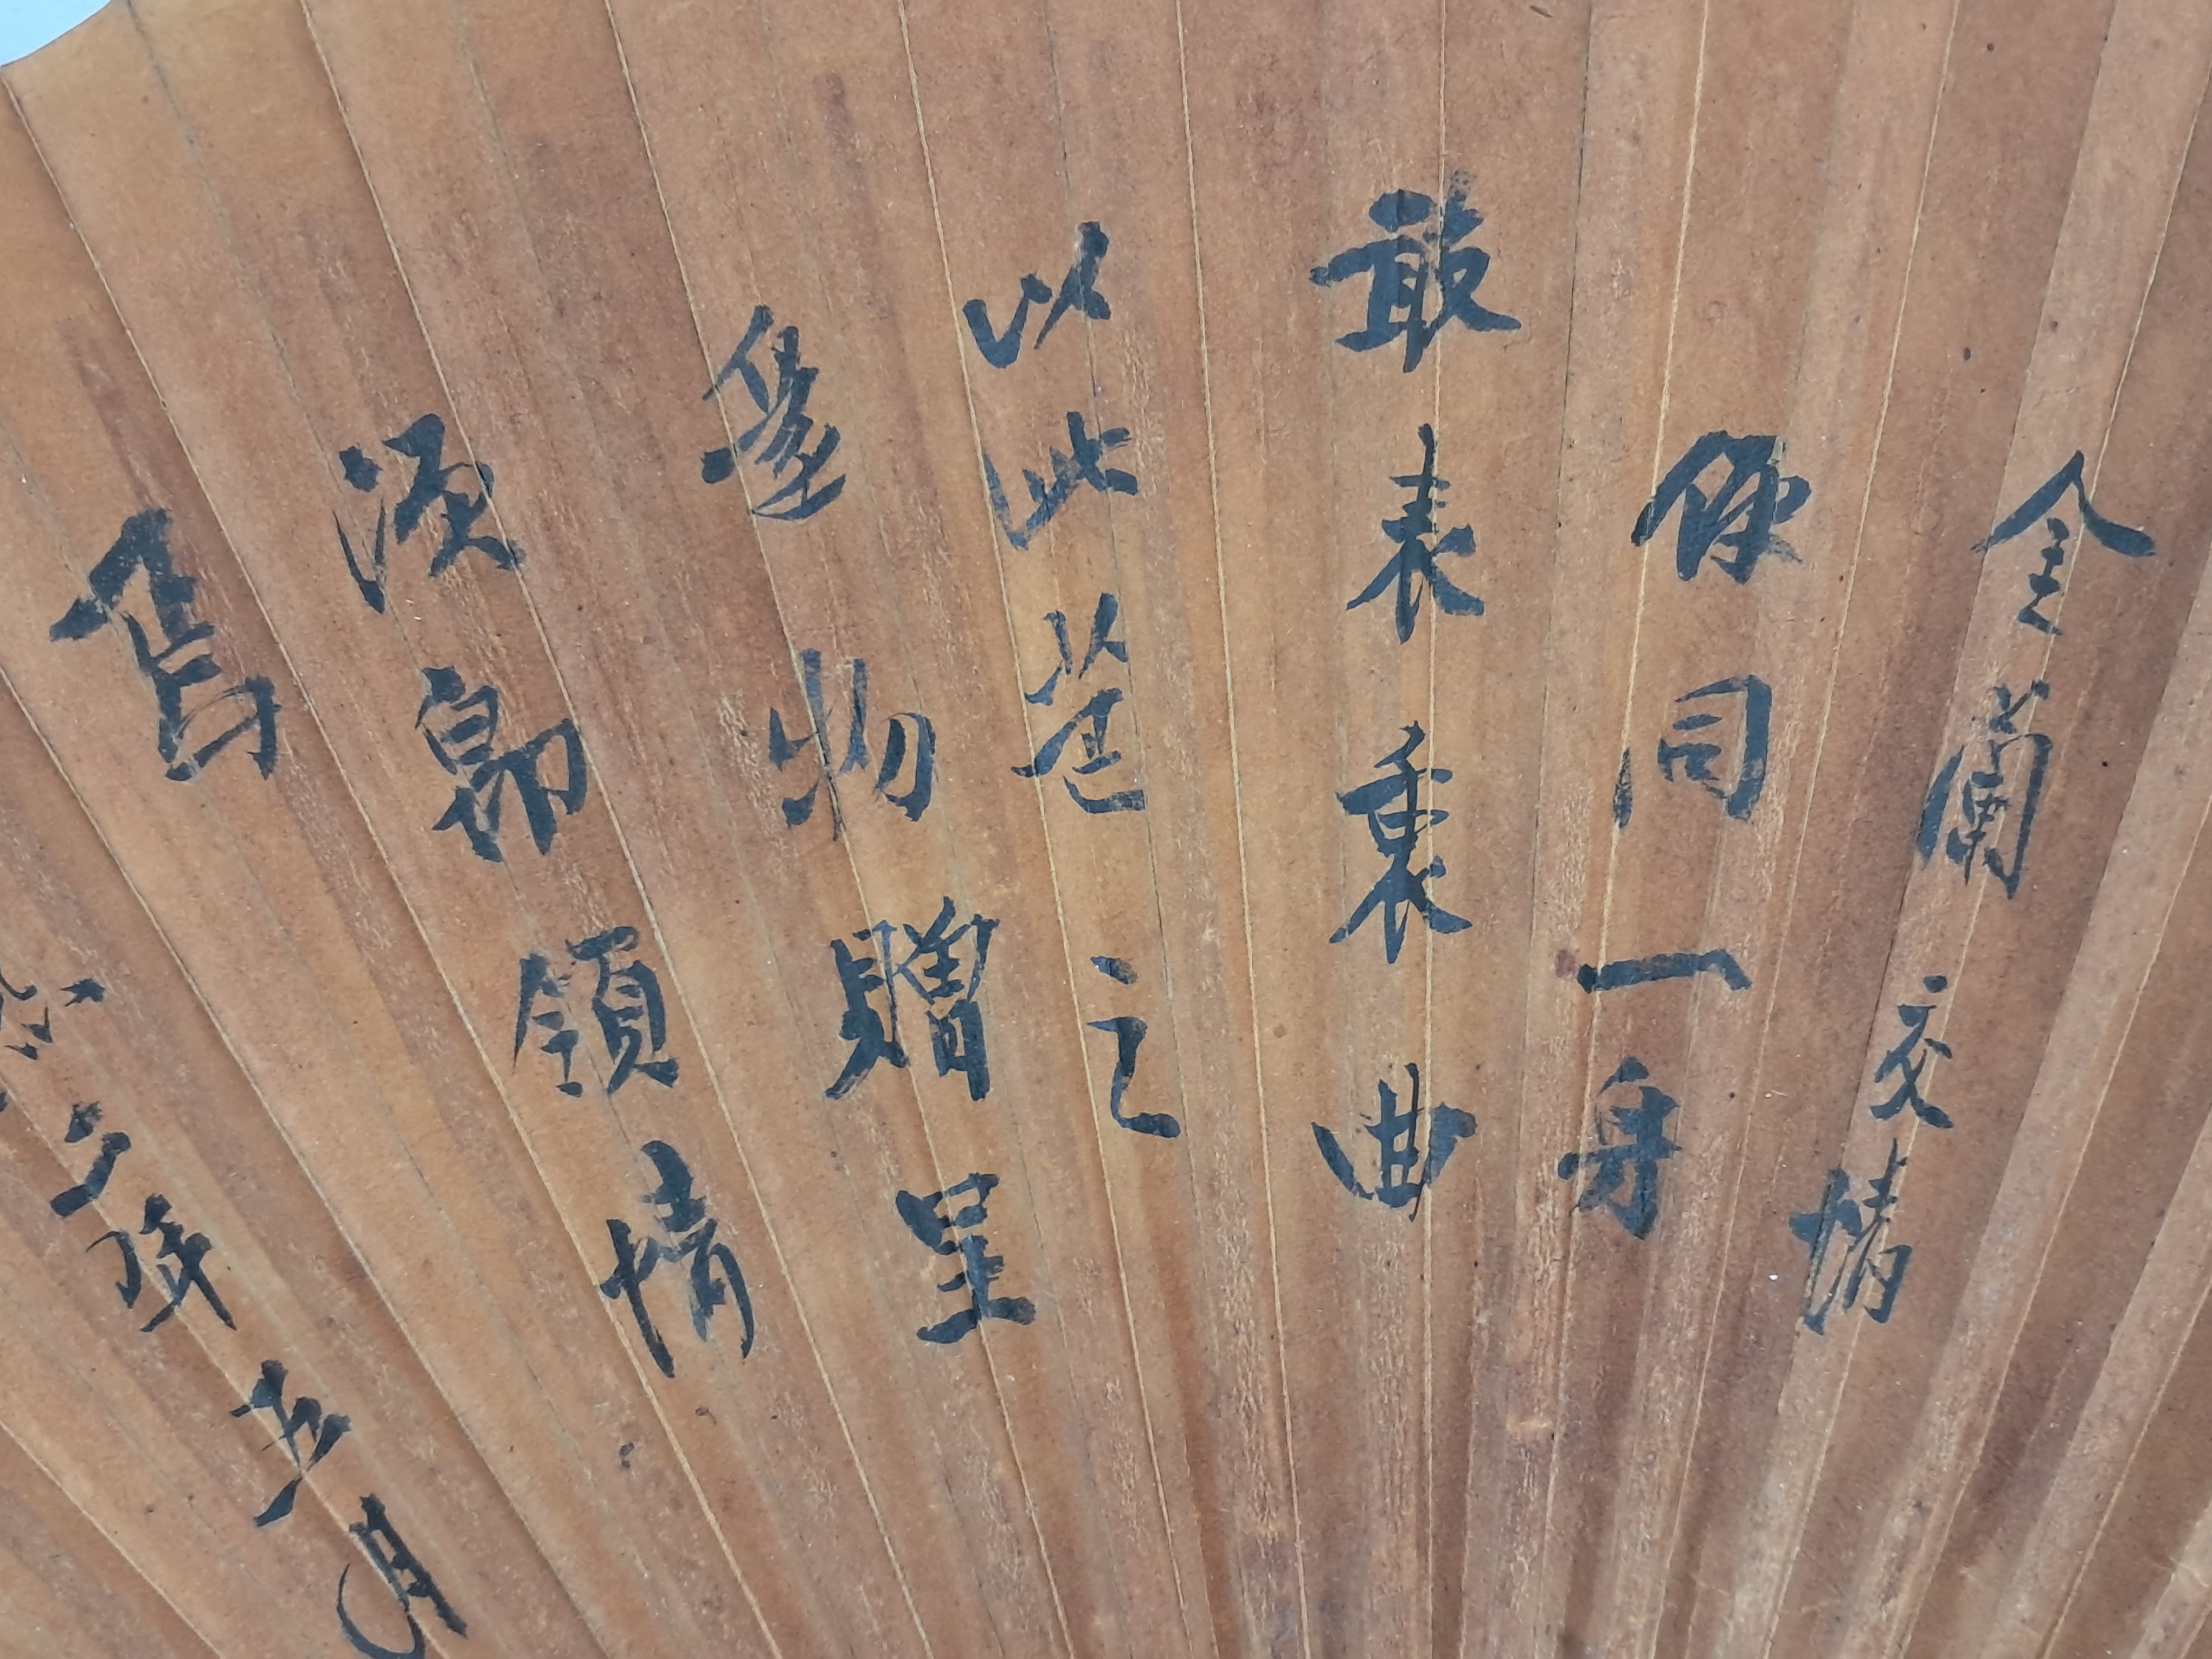 金蘭交情
便同一身
敢表衷曲
以此芒之
邊物贈呈
須即領情
為
年五月